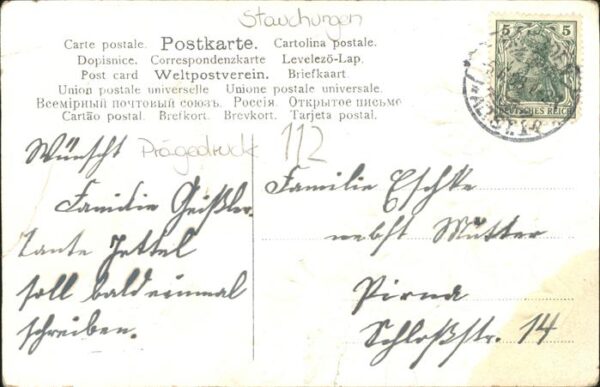 Stauchungen
Carte postale. Postkarte. Cartolina postale.
Dopisnice. Correspondenzkarte Levelező-Lap.
Post card Weltpostverein. Briefkaart.
Union postale universelle Unione postale universale.
Всемірный почтовый союзъ. Россія. Открытое письмо
Cartão postal. Brefkort. Brevkort. Tarjeta postal.
5 5
DEUTSCHES REICH
Prägedruck 112
Wünscht
Familie Geißler.
Tante Jettel
soll bald einmal
schreiben.
Familie Eschke
nebst Mutter
Pirna
Schloßstr. 14